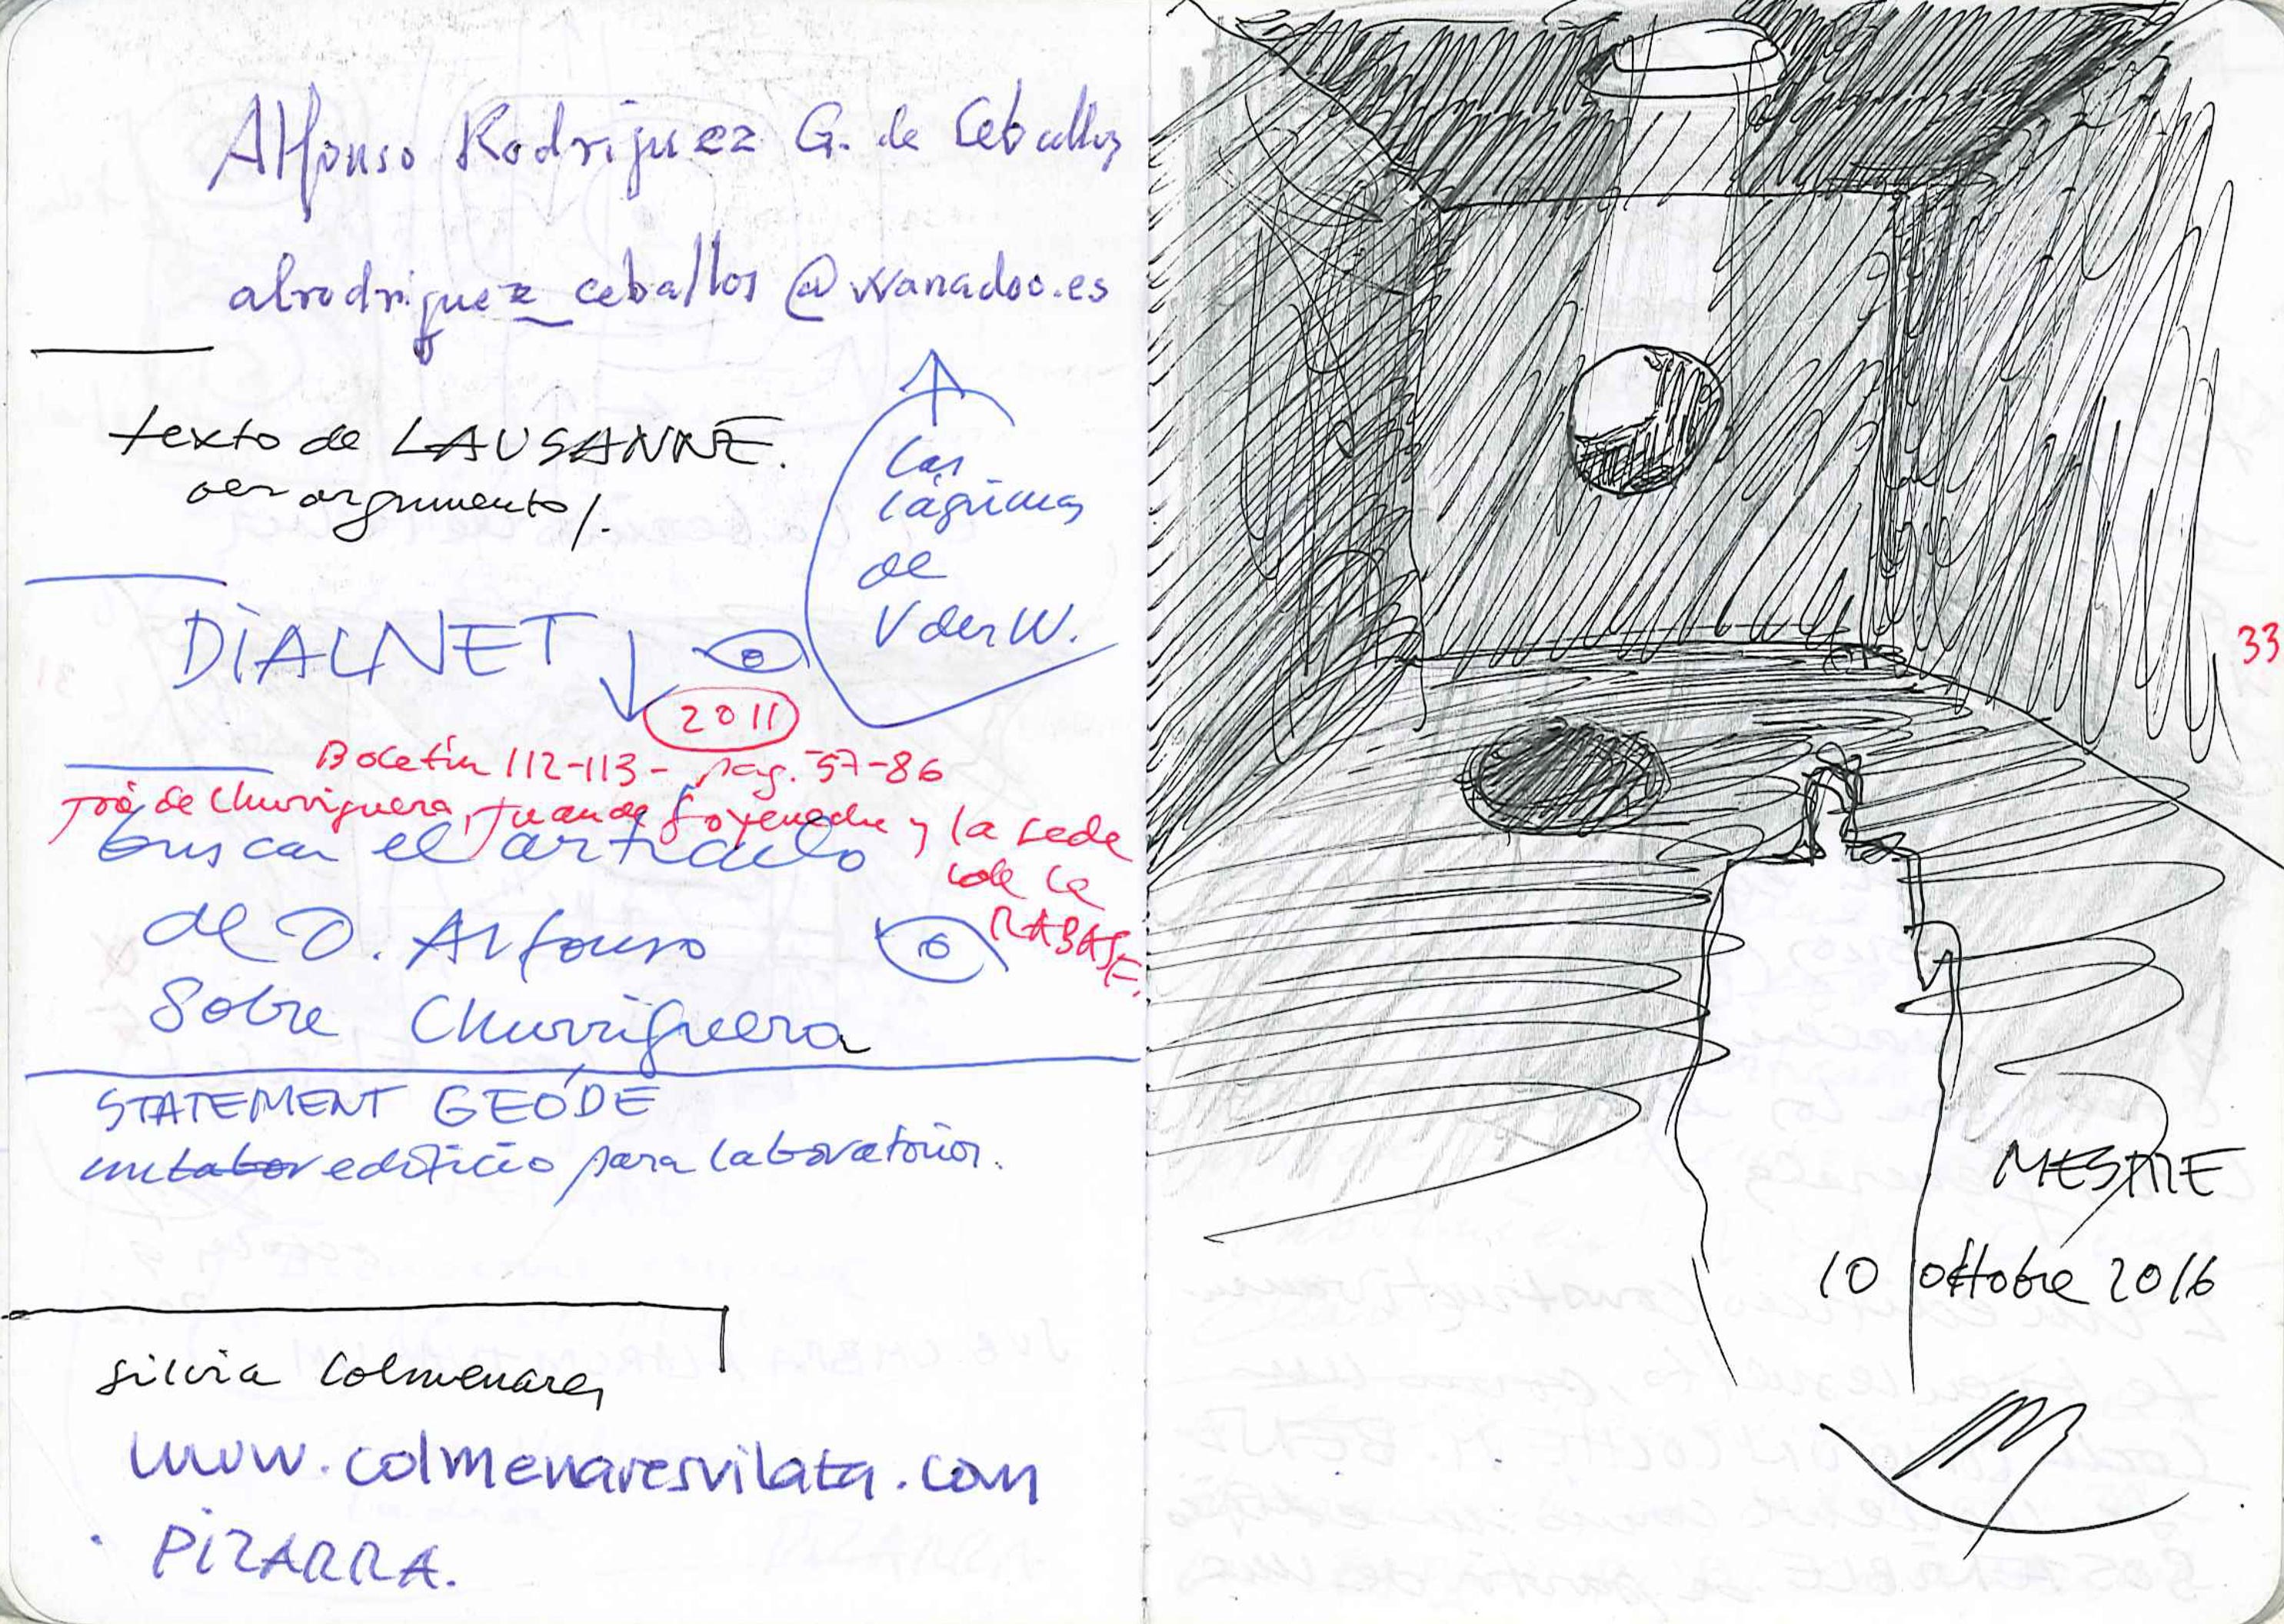 Alfonso Rodriguez G. de Ceballos
alrodriguez_ceballos@wanadoo.es
texto de LAUSANNE.
ver argumento/.
Las
lágrimas
de
V der W.
DIALNET
2011
Boletín 112-113 - pag. 57-86
José de Churriguera, Juan de Goyeneche y la sede
de la
RABASF.
buscar el artículo
de D. Alfonso
Sobre Churriguera
STATEMENT GEÓDE
un labor edificio para laboratorios.
silvia Colmenares
www.colmenaresvilata.com
PIZARRA.
33
MESTRE
10 ottobre 2016